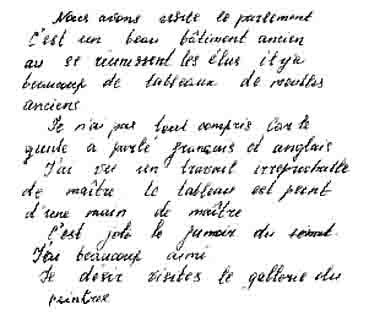 Nous avons visité le parlement
C'est un beau bâtiment ancien
au se réunissent les élus it y'a
beaucoup de tableaux de meubles
anciens
Je n'ai pas tout compris Car le
guide a parlé français et anglais
J'ai vu un travail irreprochable
de maître le tableau est peint
d'une main de maître
C'est joli le du
J'ai beaucoup aimé
Je désir visites le gallerie du
peintre